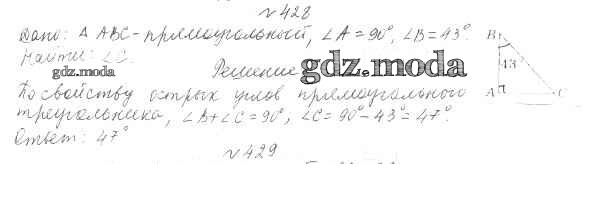 №428
Дано: Δ ABC - прямоугольный, ∠A = 90°, ∠B = 43°.
Найти: ∠C.
gdz.moda
Решение gdz.moda
По свойству острых углов прямоугольного
треугольника, ∠B + ∠C = 90°, ∠C = 90° - 43° = 47°.
Ответ: 47°
B
43°
A
C
№429